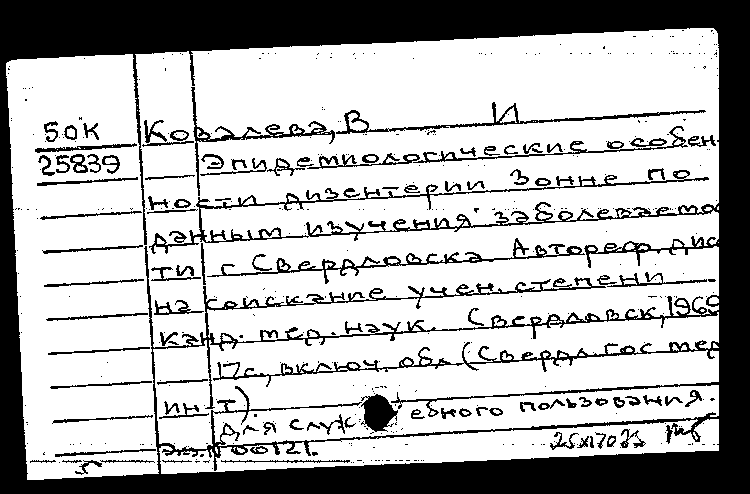 50К Ковалева, В И
25839 Эпидемиологические особен
ности дизентерии Зонне по
данным изучения заболеваемос
ти г Свердловска Автореф. дис
на соискание учен. степени
канд. мед. наук. Свердловск, 1969
17с., включ. обл (Свердл. гос мед
ин-т).
Для служебного пользования.
Экз. №00121.